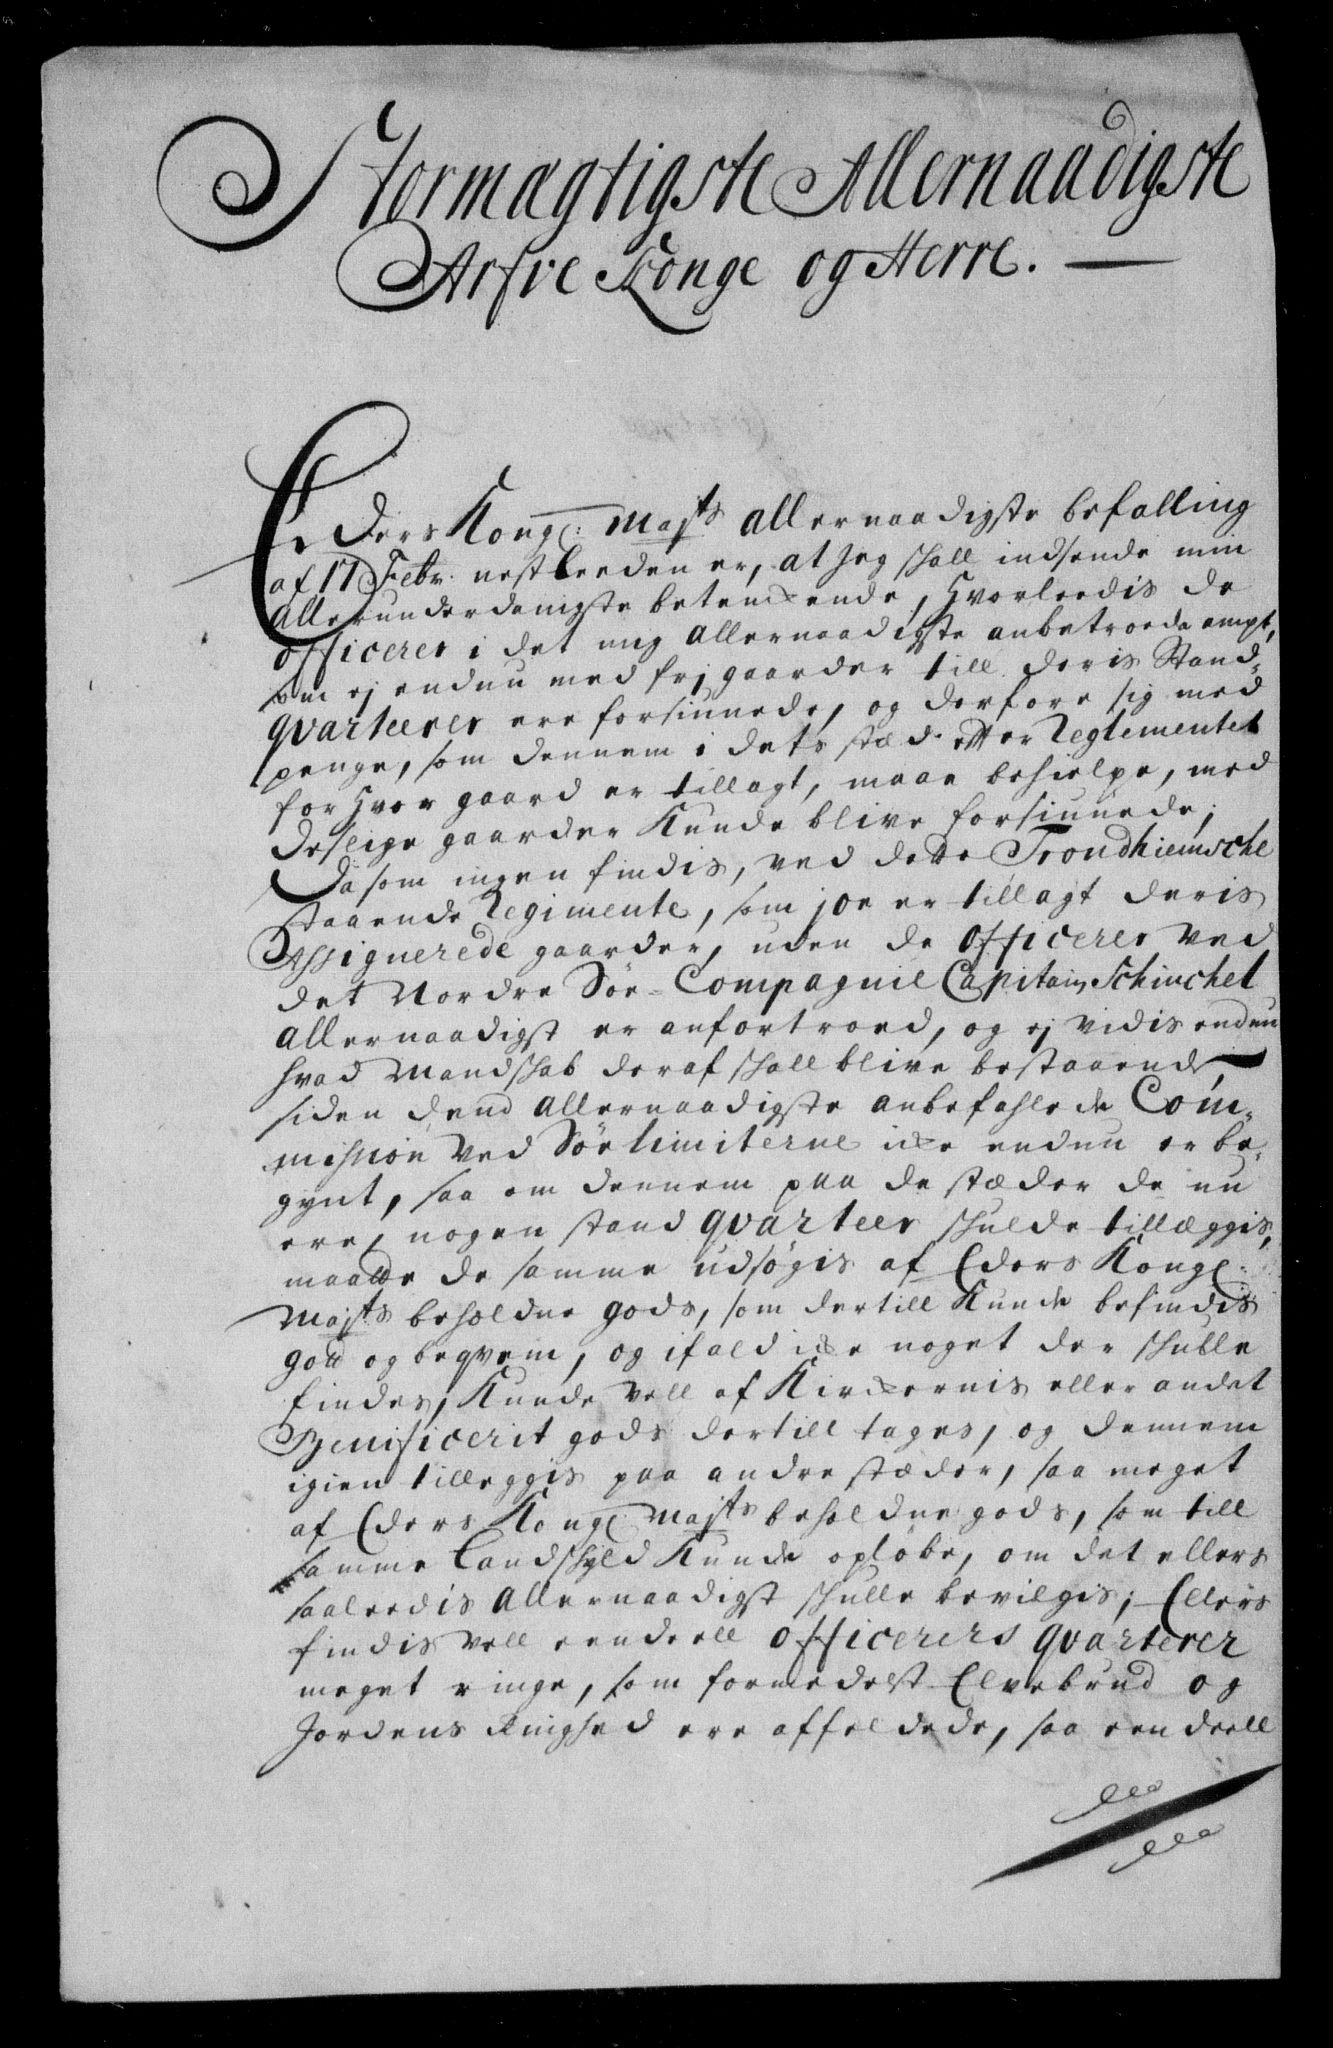 Stormægtigste Allernaadigste
Arfve Konge og Herre.
Eders Kongl: Majts allernaadigste befalling
af 17 Febr. nestleeden er, at jeg skall indsende min
allerunderdanigste betenckende, hvorleedis de
officerer i det mig allernaadigste anbetroede ampt,
som ej endnu med frj gaarder till deris Stand-
qvarteerer ere forsiunede, og derfore sig med
penge, som dennem i dets stæd efter Reglementet
for hver gaard er tillagt, maae behielpe, med
deslige gaarder kunde blive forsiunede;
Da som ingen findis, ved dette Trondhiemsche
staaende Regimente, som joe er tillagt deris
Assignerede gaarder, uden de officerer ved
det Nordre Søe-Compagnie Capitain Schinchel
allernaadigst er anfortroed, og ej vidis endnu
hvad Mandskab deraf skall blive bestaaende,
siden dend allernaadigste anbefahlede Com-
mission ved Søe limiterne icke endnu er be-
gynt, saa om dennem paa de stæder de nu
ere, nogen stand qvarteer skulde tillæggis,
maatte de samme udsøgis af Eders Kongl:
Majts beholdne gods, som dertill kunde befindis
gott og beqvem, og ifald icke noget der skulle
findes, kunde vell af Kirckernis eller andet
Benificerit gods dertill tages, og dennem
igien tilleggis paa andre stæder, saa meget
af Eders Kongl: Majts beholdne gods, som till
samme landskyld kunde opløbe, om det ellers
saaleedis allernaadigst skulle bevilgis; Ellers
findis vell eendeell officerers qvarterer
meget ringe, som formedelst Elvebrud og
Jordens Ringhed ere affeldede, saa eendeell